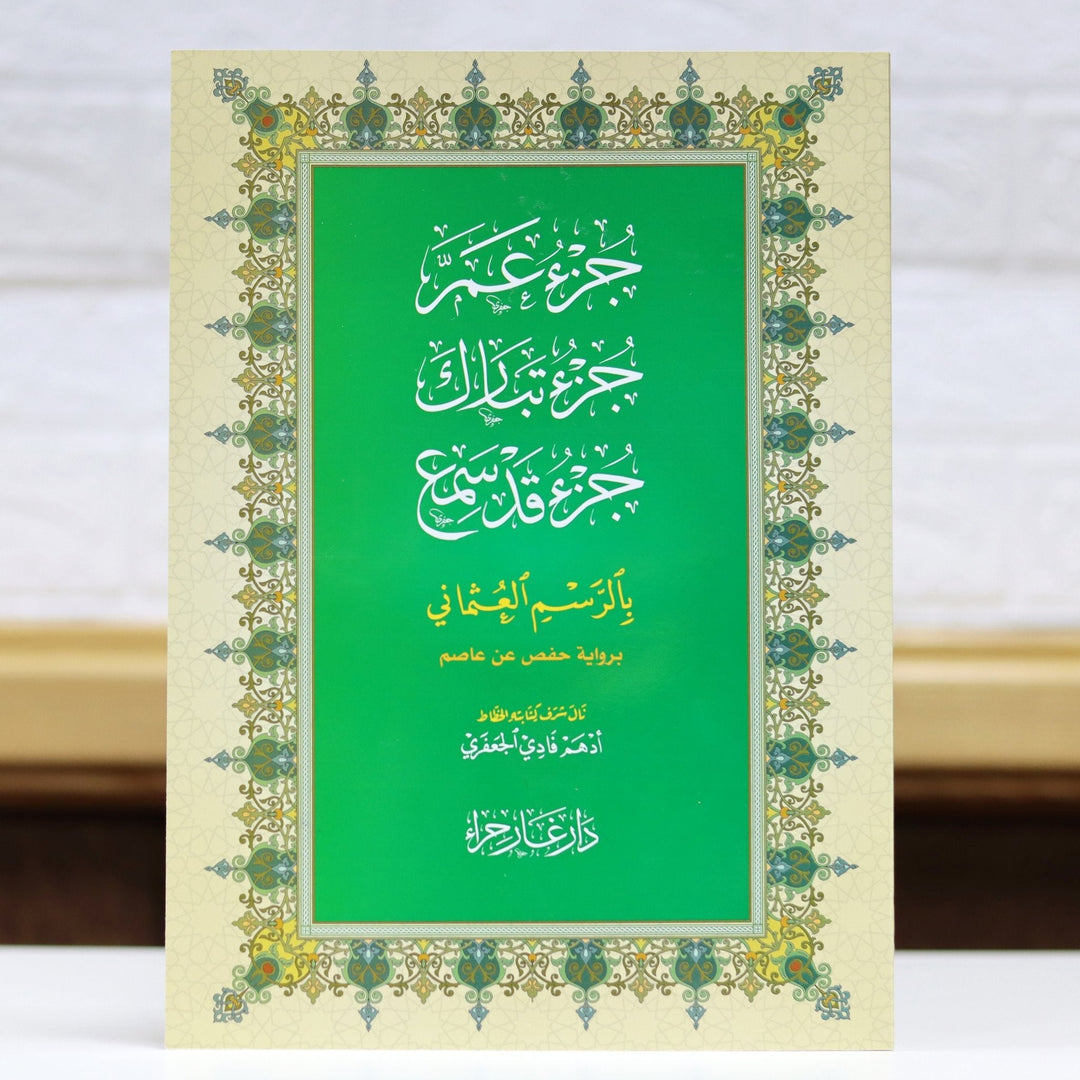 جُزْءُ عَمَّ
جُزْءُ تَبَارَكَ
جُزْءُ قَدْ سَمِعَ
بِٱلرَّسْمِ ٱلْعُثْمَانِي
برواية حفص عن عاصم
نَالَ شَرَفَ كِتَابَتِهِ الخَطَّاط
أَدْهَم فَادِي ٱلجَعْفَرِيّ
دَار غَار حِرَاء